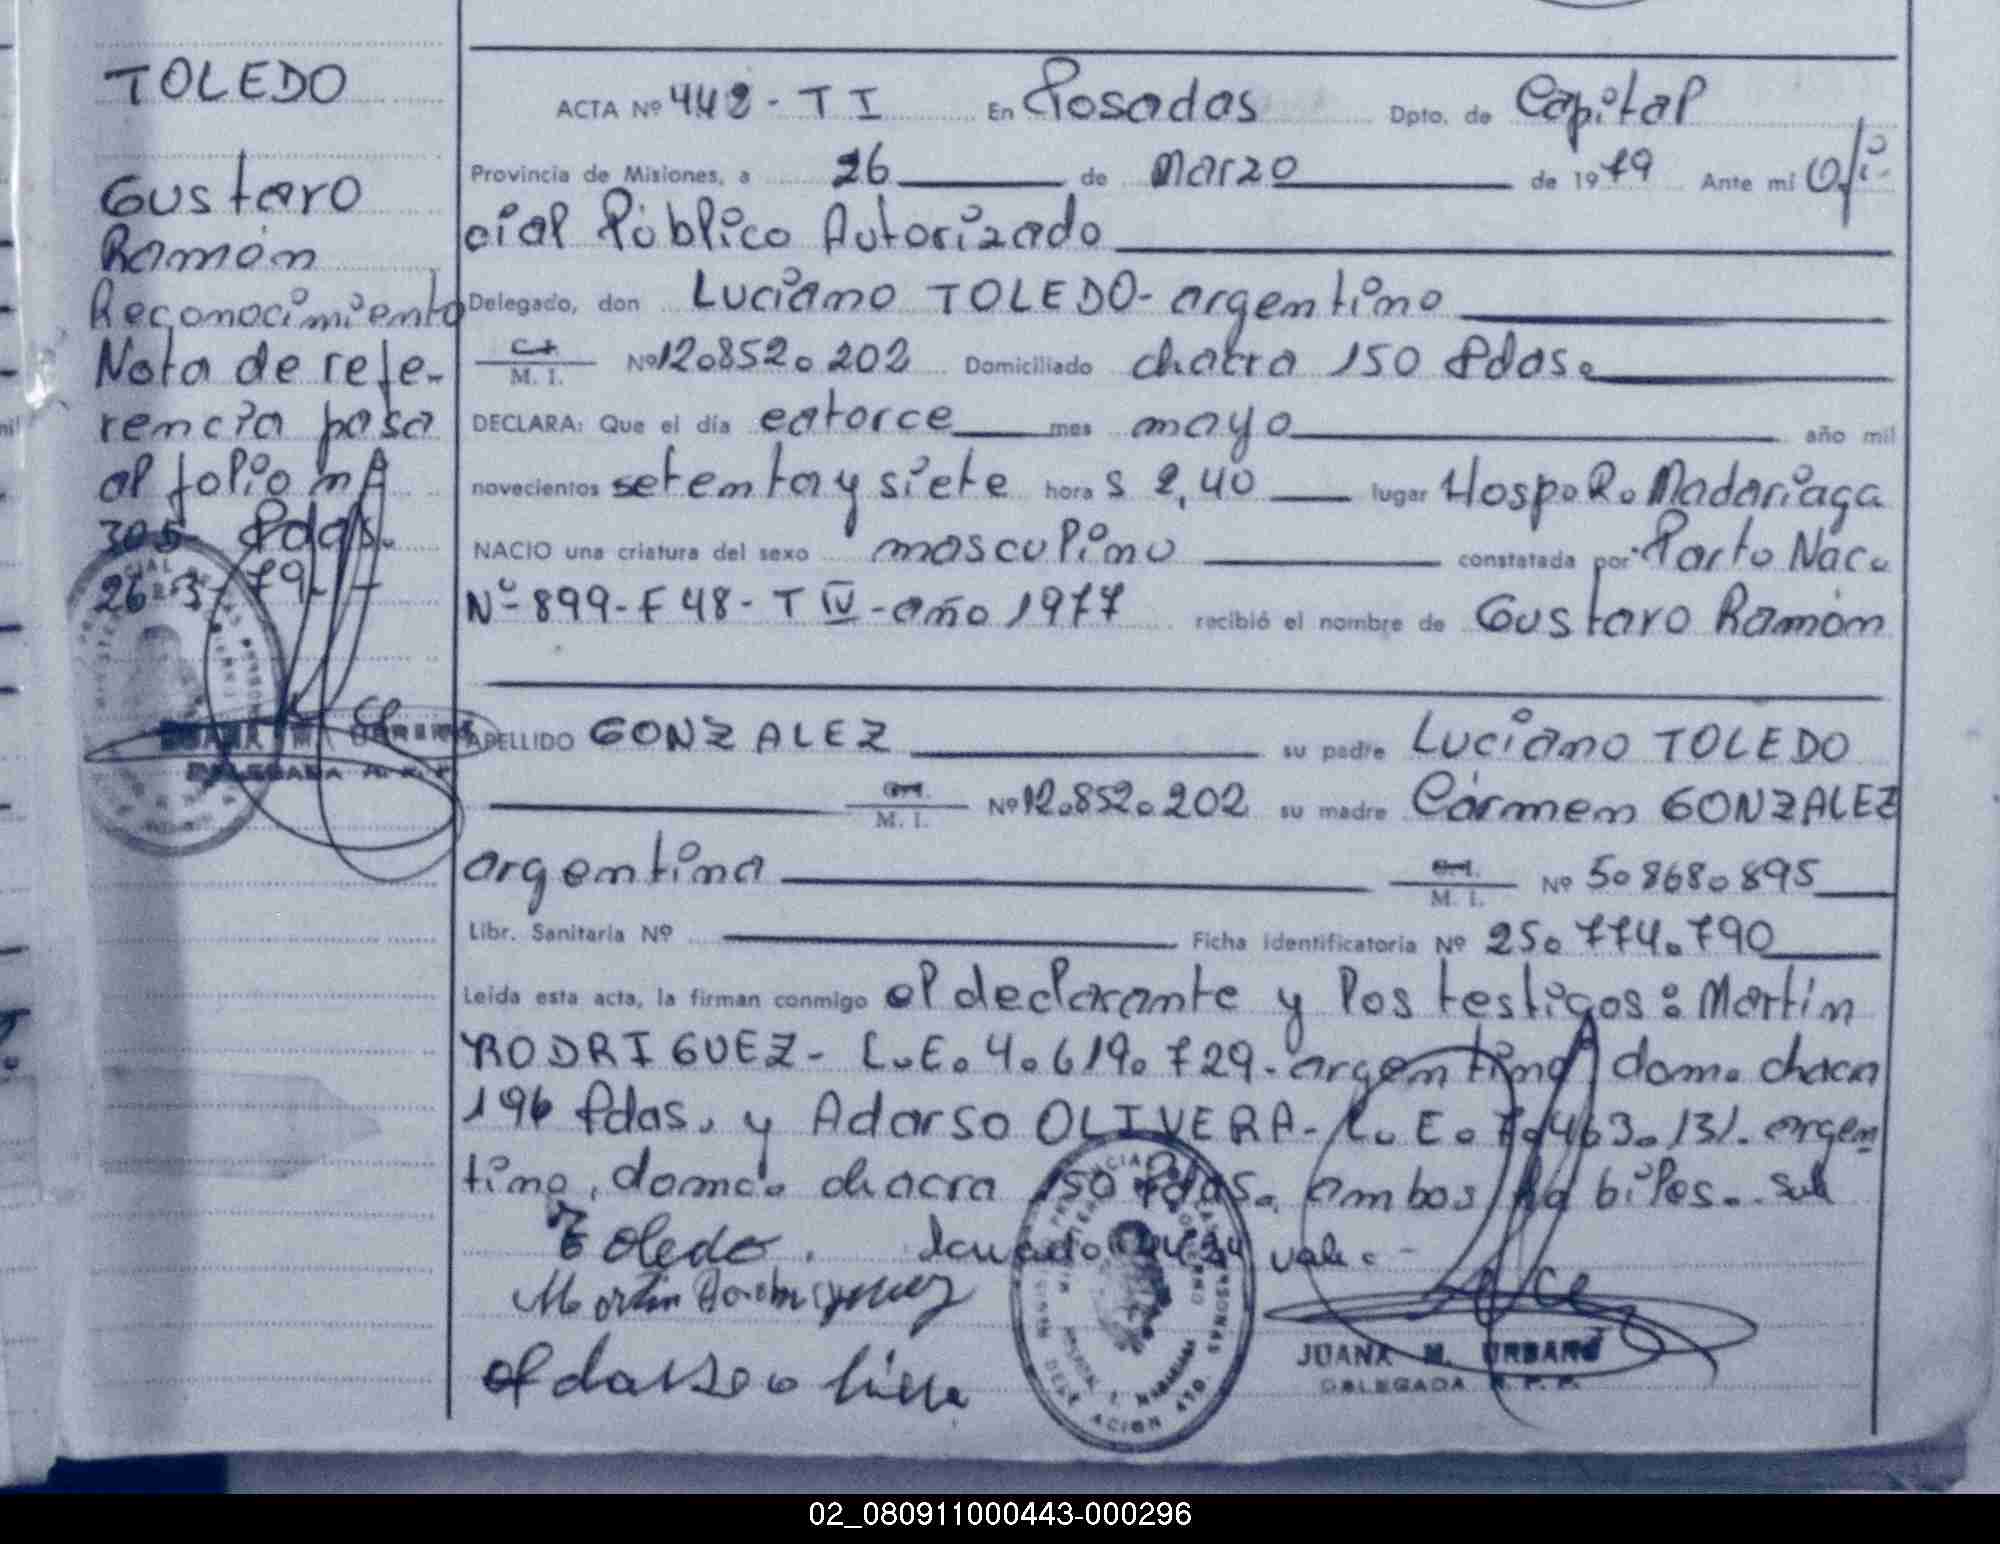 TOLEDO
Gustavo
Ramón
Reconocimiento
Nota de refe-
rencia pasa
al folio nº
305 Pdas.
26-3-79
DELEGADA R. P. P.
ACTA Nº 442 - T I En Posadas Dpto. de Capital
Provincia de Misiones, a 26 de Marzo de 1979 Ante mi Ofi-
cial Público Autorizado
Delegado, don Luciano TOLEDO - argentino
M. I. Nº 12.852.202 Domiciliado chacra 150 Pdas.
DECLARA: Que el día catorce mes mayo año mil
novecientos setenta y siete hora s 2,40 lugar Hosp. R. Madariaga
NACIO una criatura del sexo masculino constatada por Parto Nac.
Nº 899 - F 48 - T IV - año 1977 recibió el nombre de Gustavo Ramón
APELLIDO GONZALEZ su padre Luciano TOLEDO
M. I. Nº 12.852.202 su madre Carmen GONZALEZ
argentina M. I. Nº 5.868.895
Libr. Sanitaria Nº Ficha identificatoria Nº 25.774.790
Leída esta acta, la firman conmigo el declarante y los testigos: Martín
RODRIGUEZ - L.E. 4.619.729 - argentino, dom. chacra
196 Pdas. y Adarso OLIVERA - L.E. 7.463.131. argen
tino, domc. chacra 150 Pdas. ambos hábiles. Sub
Toledo. vale.-
Martin Rodriguez
JUANA M. URBANO
DELEGADA R. P. P.
02_080911000443-000296